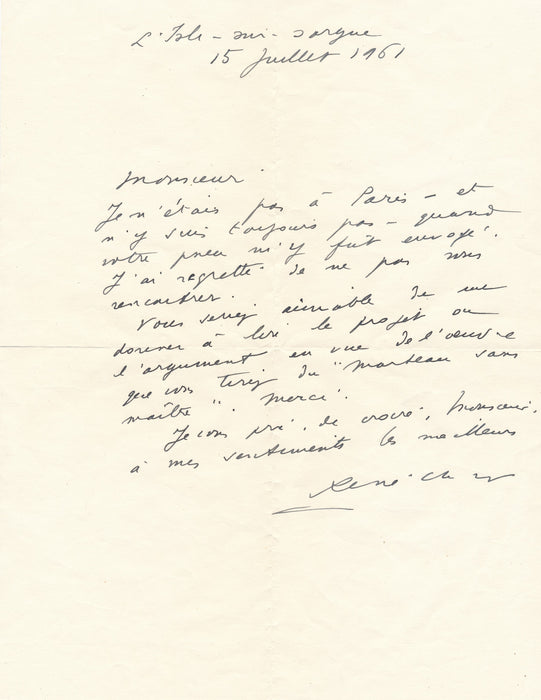 L'Isle-sur-Sorgue
15 Juillet 1961
Monsieur
Je n'étais pas à Paris - et
n'y suis toujours pas - quand
votre pneu m'y fut envoyé.
J'ai regretté de ne pas vous
rencontrer.
Vous seriez aimable de me
donner à lire le projet ou
l'argument en vue de l'oeuvre
que vous tirez du "marteau sans
maître". Merci.
Je vous prie, de croire, Monsieur,
à mes sentiments les meilleurs
René Char